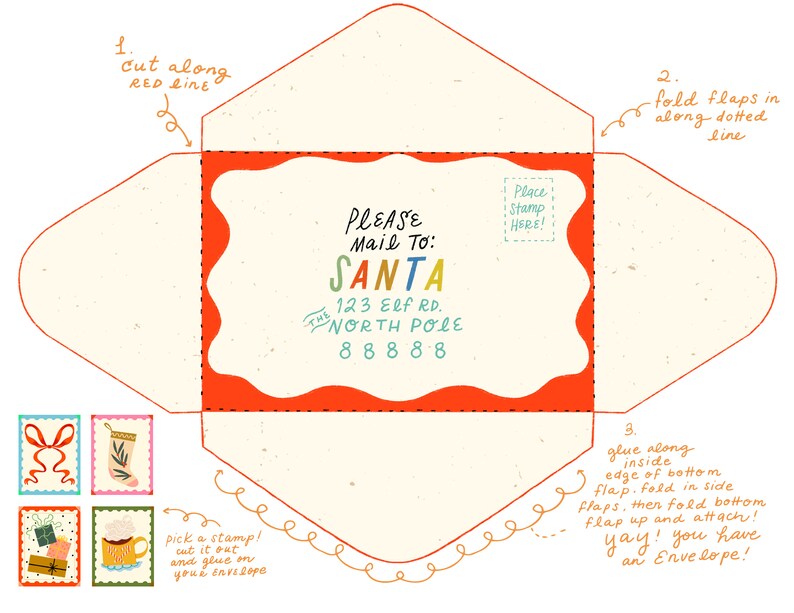 1.
cut along
RED LINE
2.
fold flaps in
along dotted
line
Place
Stamp
HERE!
PLEASE
Mail To:
SANTA
123 Elf RD.
THE NORTH POLE
88888
3.
glue along
inside
edge of bottom
flap. fold in side
flaps, then fold bottom
flap up and attach!
yay! you have
an Envelope!
pick a stamp!
cut it out
and glue on
your Envelope